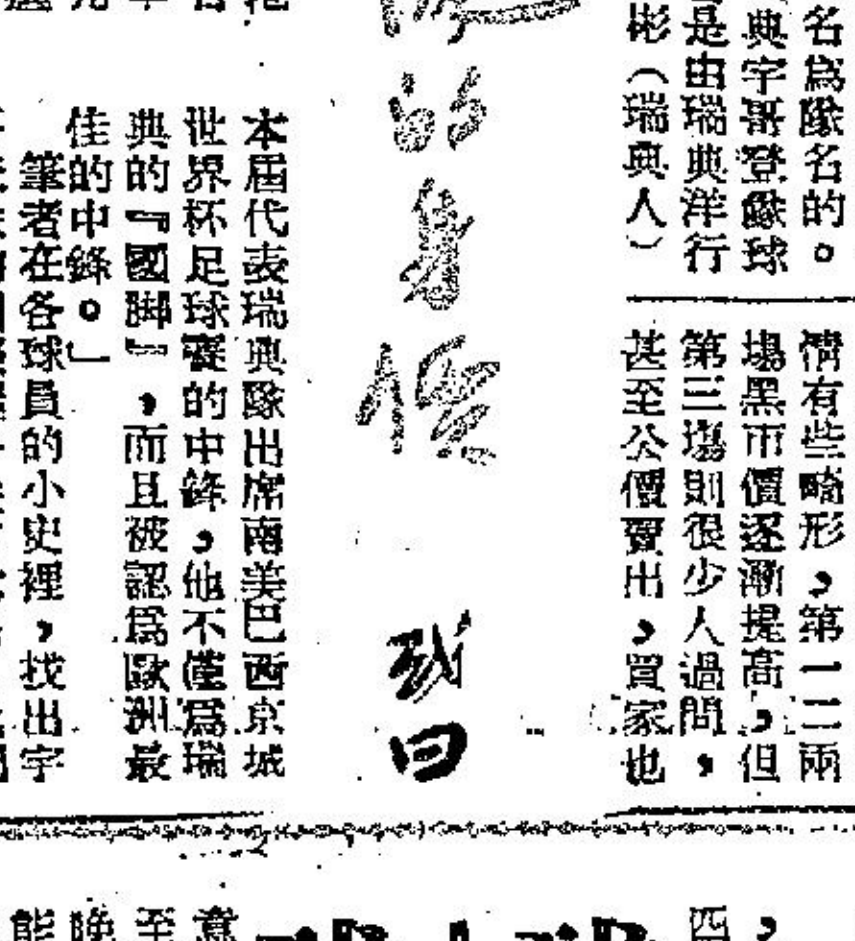 名為隊名的。
典宇哥登隊球
是由瑞典洋行
彬（瑞典人）
情有些畸形，第一二兩
場黑市價逐漸提高，但
第三場則很少人過問，
甚至公價賣出，買家也
的身價
本屆代表瑞典隊出席南美巴西京城
世界杯足球賽的中鋒，他不僅為瑞
典的『國脚』，而且被認爲歐洲最
佳的中鋒。」
筆者在各球員的小史裡，找出宇
四，
意
至
晚
能